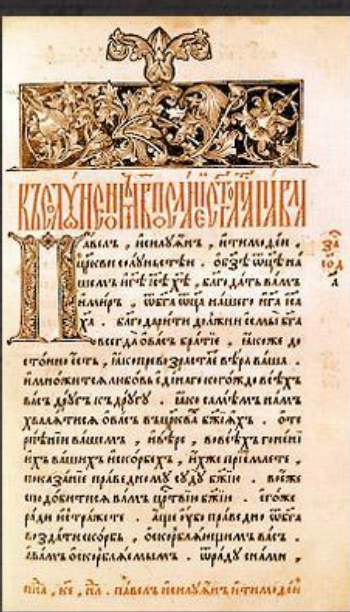 Павелъ , и силуѧ́нъ , и тимоѳеи ,
цр҃кви солꙋ́ньстѣи . ѡ бз҃ѣ ѡц҃ѣ на
шемъ и г҃ѣ і҃сѣ х҃ѣ , благодать вамъ
и миръ , ѿ бг҃а ѡц҃а нашего и г҃а іс҃а
х҃а . благодарити должни есмы бг҃а
всегда ѡ васъ братїе , ꙗкоже до
стоино есть , ꙗко превозрастае вѣра ваша .
и множитсѧ любовь единаго когождо всѣхъ
васъ дрꙋгъ къ дрꙋгꙋ . ꙗко самѣмъ намъ
хвалитисѧ ѡ васъ въ цр҃квахъ бж҃їихъ . ѡ те
рпѣнїи вашемъ , и вѣре , во всѣхъ гоненї
ихъ вашихъ и скорбехъ , ихже прїемлете ,
показанїе праведномꙋ сꙋдꙋ бж҃їю . во еже
сподобитисѧ вамъ цр҃твїю бж҃їю . егоже
ради и стражете . аще ꙋбо праведно ѿ бг҃а
воздати скорбь , ѡскорблѧющимъ васъ .
а вамъ ѡскорблѧемымъ . ѿрадꙋ с нами ,
павелъ и силꙋѧнъ и тимоѳеи